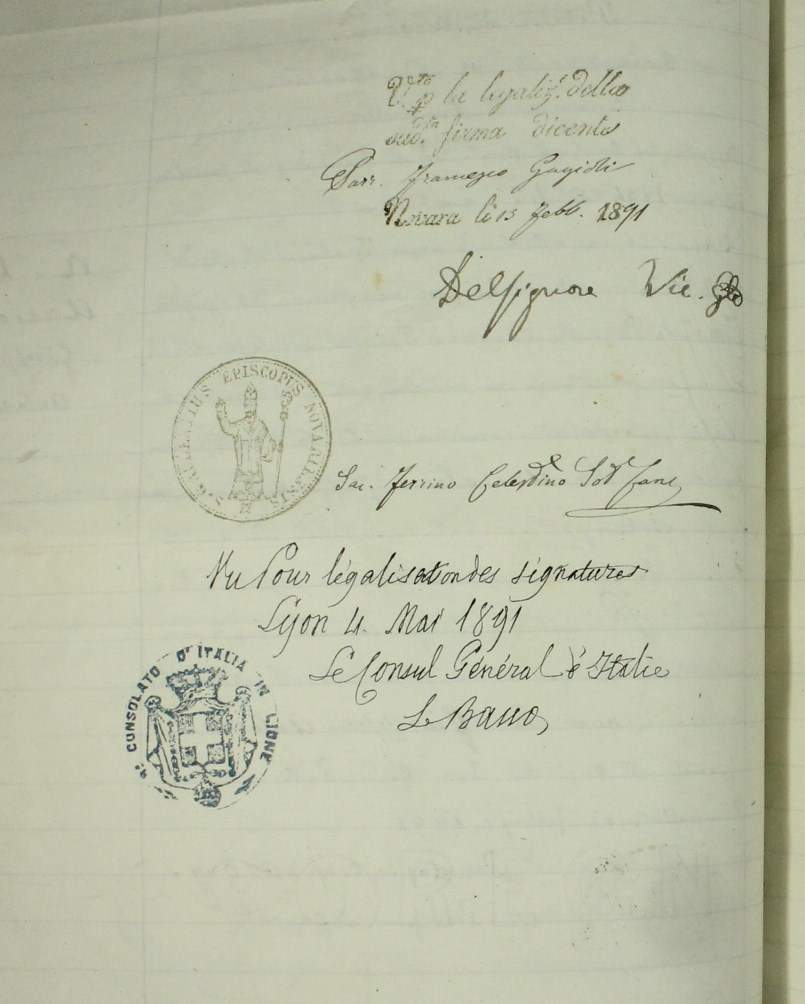 V.to p la legaliz.e della
sud.ta firma dicente
Parr. Francesco
Novara li 15 Febb. 1891
Delsignore Vic. Gle
S. GAUDENTIUS EPISCOPUS NOVARIENSIS
Sac. Ferrino Celestino
Vu Pour légalisation des signatures
Lyon 4 Mai 1891
Le Consul Général d'Italie
L Basso
R. CONSOLATO D'ITALIA IN LIONE